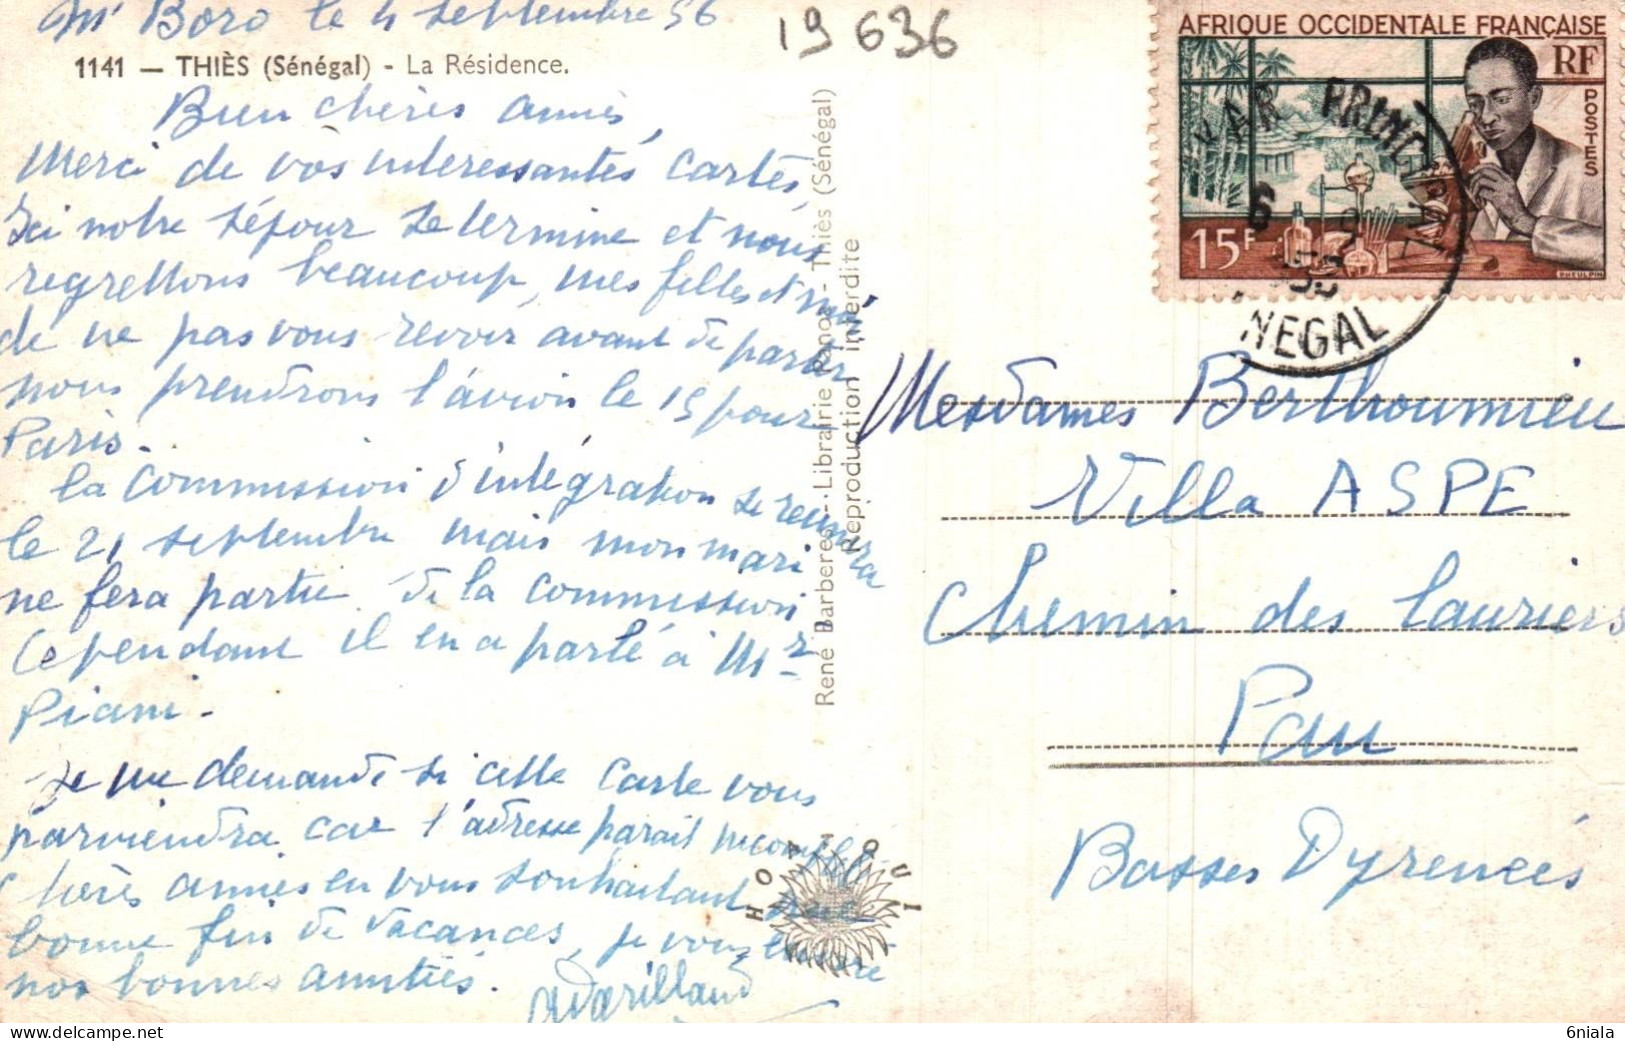 Mr Boro le 4 septembre 56
19636
1141 — THIÈS (Sénégal) - La Résidence.
Bien chères amies,
Merci de vos interessantes cartes,
Ici notre séjour se termine et nous
regrettons beaucoup, mes filles et moi
de ne pas vous revoir avant de partir
nous prendrons l'avion le 15 pour
Paris.
La commission d'intégration se reunira
le 21 septembre mais mon mari
ne fera partie de la commission
Cependant il en a parlé à Mr
Piani.
Je me demande si cette carte vous
parviendra car l'adresse parait incomplète
Chères amies en vous souhaitant une
bonne fin de vacances, je vous
nos bonnes amitiés.
René Barberea - Librairie Panor - Thiès (Sénégal)
Reproduction interdite
HOA-QUI
AFRIQUE OCCIDENTALE FRANÇAISE
RF
POSTES
15F
PHEULPIN
KAR PRINCIPAL
6 9
NEGAL
Mesdames Berthoumieu
Villa ASPE
Chemin des Lauriers
Pau
Basses Pyrenées
6niala